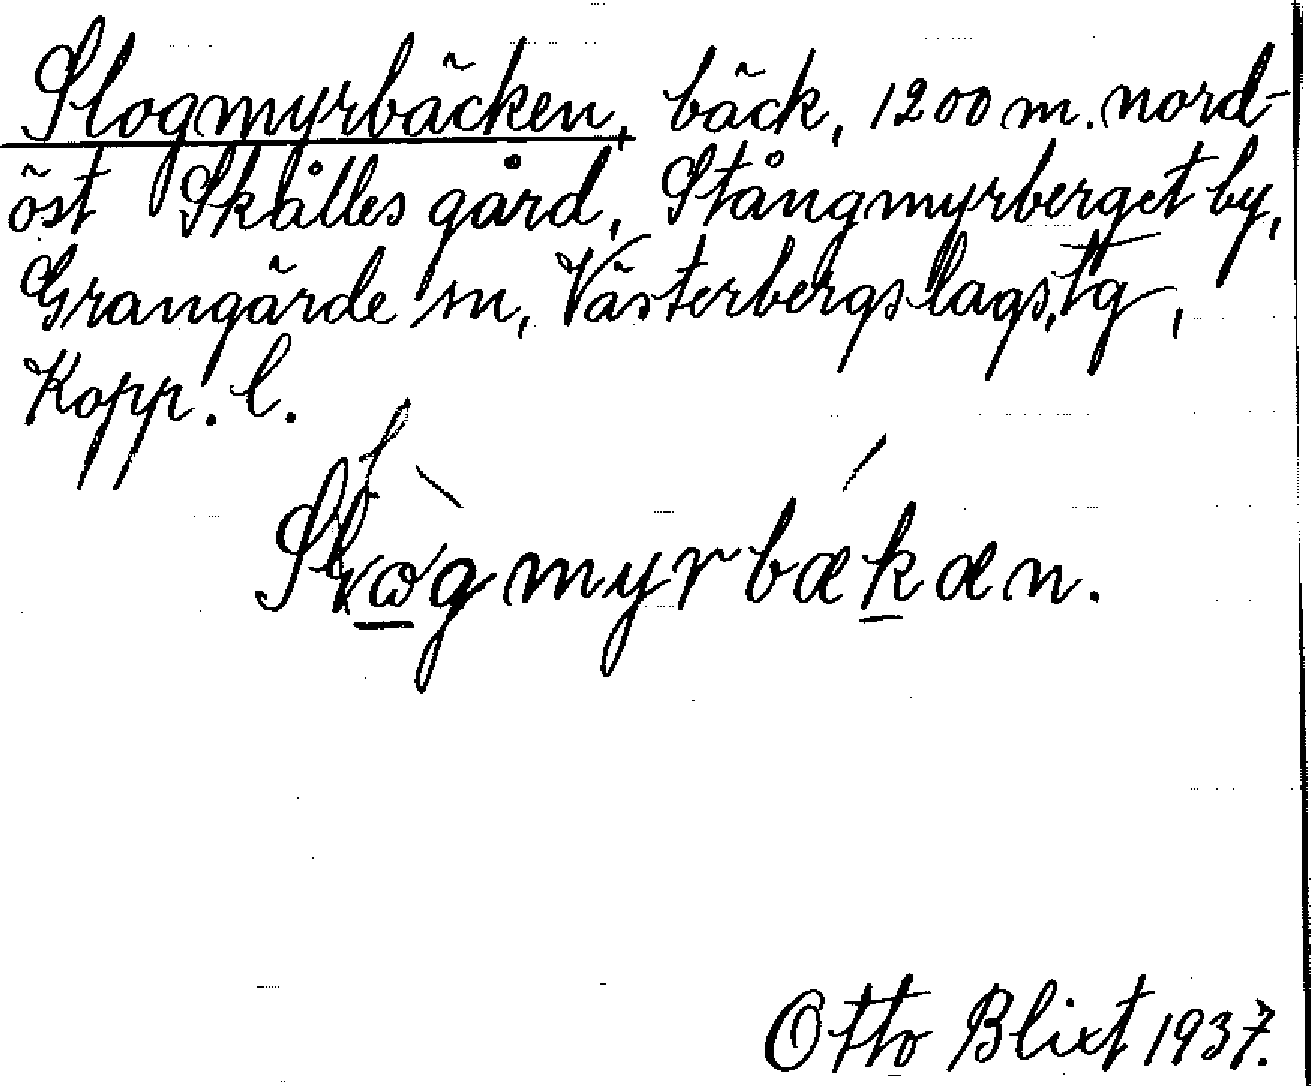 Slogmyrbäcken, bäck, 1200 m. nord-
öst Skålles gård, Stångmyrberget by,
Grangärde sn, Västerbergslags tg,
Kopp. l.
Otto Blixt 1937.